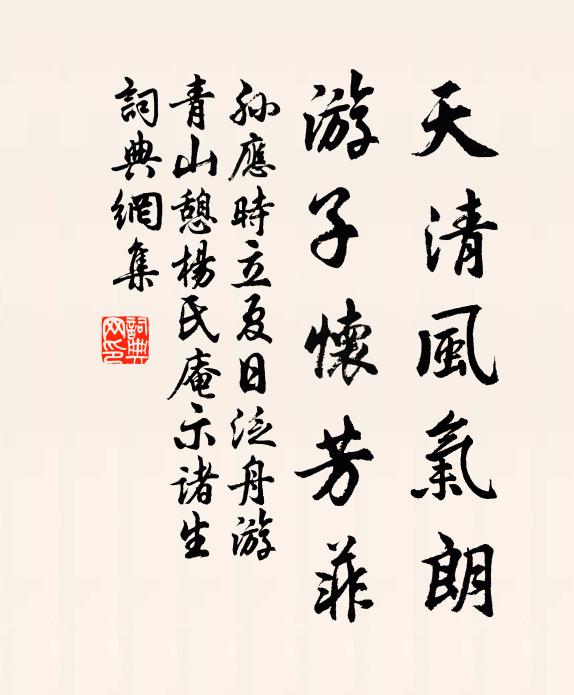 天清風氣朗
游子懷芳菲
孫應時立夏日泛舟游
青山憩楊氏庵示諸生
詞典網集
詞典网印